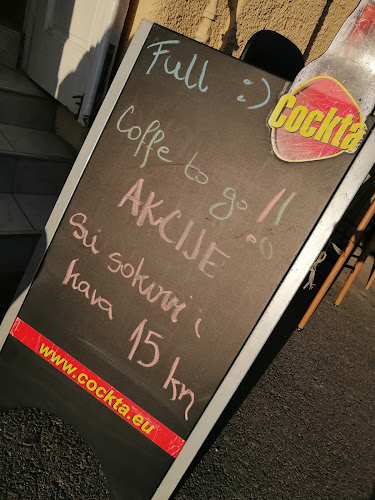 Full :)
Cockta
Coffe to go !!
AKCIJE
Svi sokovi i
kava 15 kn
www.cockta.eu